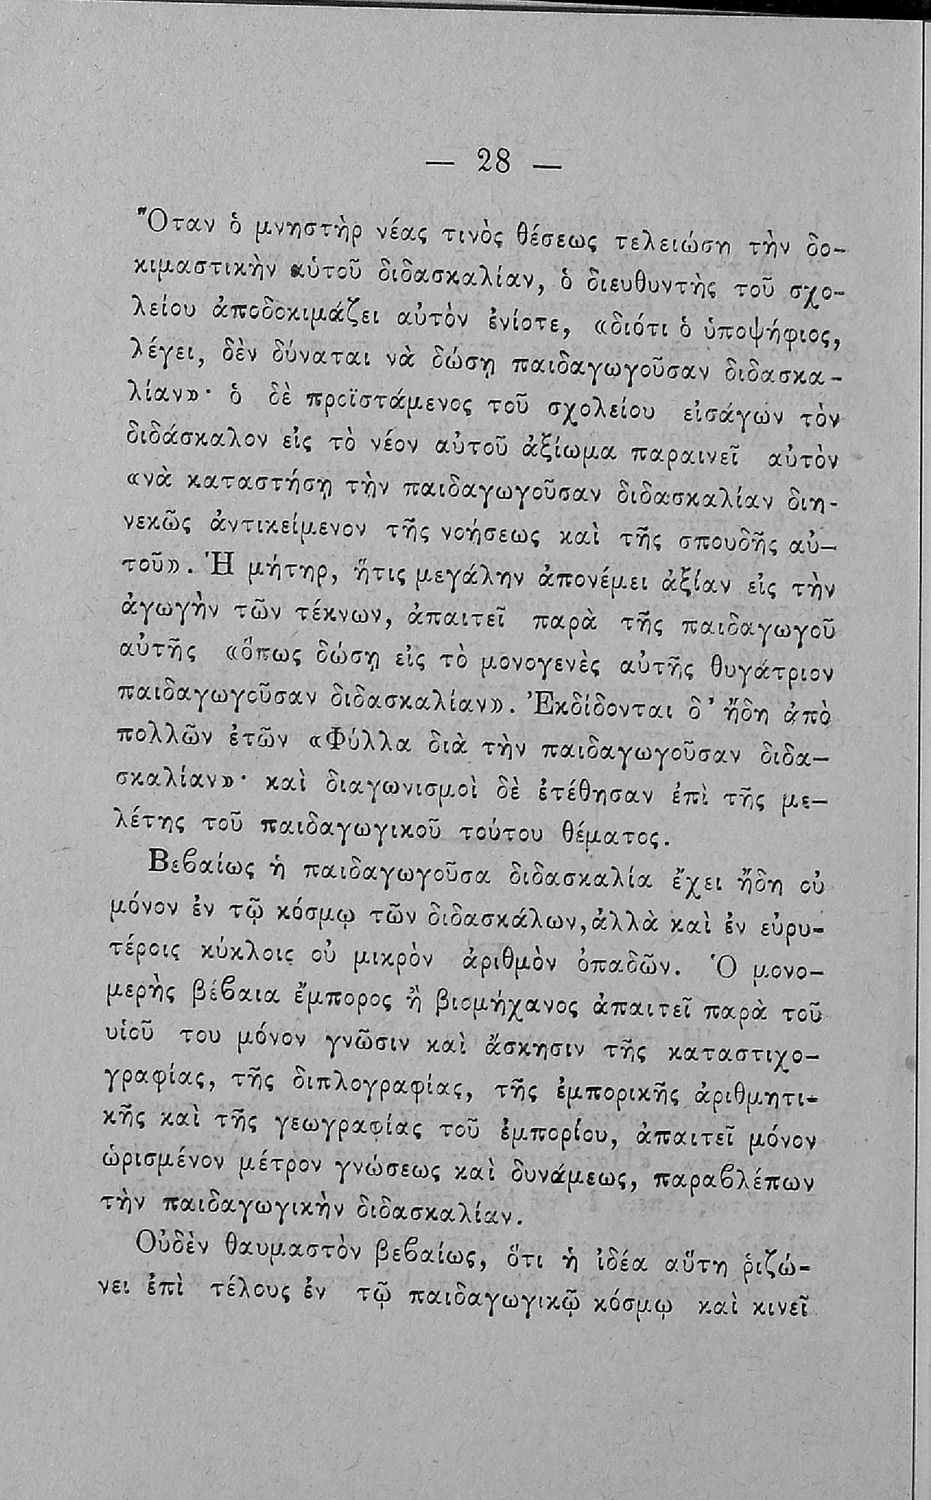 — 28 —
Ὅταν ὁ μνηστὴρ νέας τινὸς θέσεως τελειώσῃ τὴν δο-
κιμαστικὴν αὑτοῦ διδασκαλίαν, ὁ διευθυντὴς τοῦ σχο-
λείου ἀποδοκιμάζει αὐτὸν ἐνίοτε, «διότι ὁ ὑποψήφιος,
λέγει, δὲν δύναται νὰ δώσῃ παιδαγωγοῦσαν διδασκα-
λίαν»· ὁ δὲ προϊστάμενος τοῦ σχολείου εἰσάγων τὸν
διδάσκαλον εἰς τὸ νέον αὑτοῦ ἀξίωμα παραινεῖ αὐτὸν
«νὰ καταστήσῃ τὴν παιδαγωγοῦσαν διδασκαλίαν διη-
νεκῶς ἀντικείμενον τῆς νοήσεως καὶ τῆς σπουδῆς αὑ-
τοῦ». Ἡ μήτηρ, ἥτις μεγάλην ἀπονέμει ἀξίαν εἰς τὴν
ἀγωγὴν τῶν τέκνων, ἀπαιτεῖ παρὰ τῆς παιδαγωγοῦ
αὐτῆς «ὅπως δώσῃ εἰς τὸ μονογενὲς αὐτῆς θυγάτριον
παιδαγωγοῦσαν διδασκαλίαν». Ἐκδίδονται δ' ἤδη ἀπὸ
πολλῶν ἐτῶν «Φύλλα διὰ τὴν παιδαγωγοῦσαν διδα-
σκαλίαν»· καὶ διαγωνισμοὶ δὲ ἐτέθησαν ἐπὶ τῆς με-
λέτης τοῦ παιδαγωγικοῦ τούτου θέματος.
Βεϐαίως ἡ παιδαγωγοῦσα διδασκαλία ἔχει ἤδη οὐ
μόνον ἐν τῷ κόσμῳ τῶν διδασκάλων, ἀλλὰ καὶ ἐν εὐρυ-
τέροις κύκλοις οὐ μικρὸν ἀριθμὸν ὀπαδῶν. Ὁ μονο-
μερὴς βέϐαια ἔμπορος ἢ βιομήχανος ἀπαιτεῖ παρὰ τοῦ
υἱοῦ του μόνον γνῶσιν καὶ ἄσκησιν τῆς καταστιχο-
γραφίας, τῆς διπλογραφίας, τῆς ἐμπορικῆς ἀριθμητι-
κῆς καὶ τῆς γεωγραφίας τοῦ ἐμπορίου, ἀπαιτεῖ μόνον
ὡρισμένον μέτρον γνώσεως καὶ δυνάμεως, παραϐλέπων
τὴν παιδαγωγικὴν διδασκαλίαν.
Οὐδὲν θαυμαστὸν βεϐαίως, ὅτι ἡ ἰδέα αὕτη ῥιζώ-
νει ἐπὶ τέλους ἐν τῷ παιδαγωγικῷ κόσμῳ καὶ κινεῖ